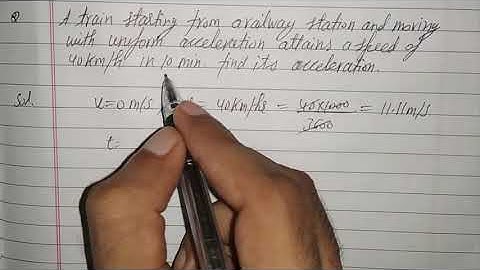 Q A train starting from a railway station and moving
with uniform acceleration attains a speed of
40 km/h in 10 min. find its acceleration.
Sol. u=0 m/s = 40km/h = 40×1000 = 11.11m/s
3600
t=